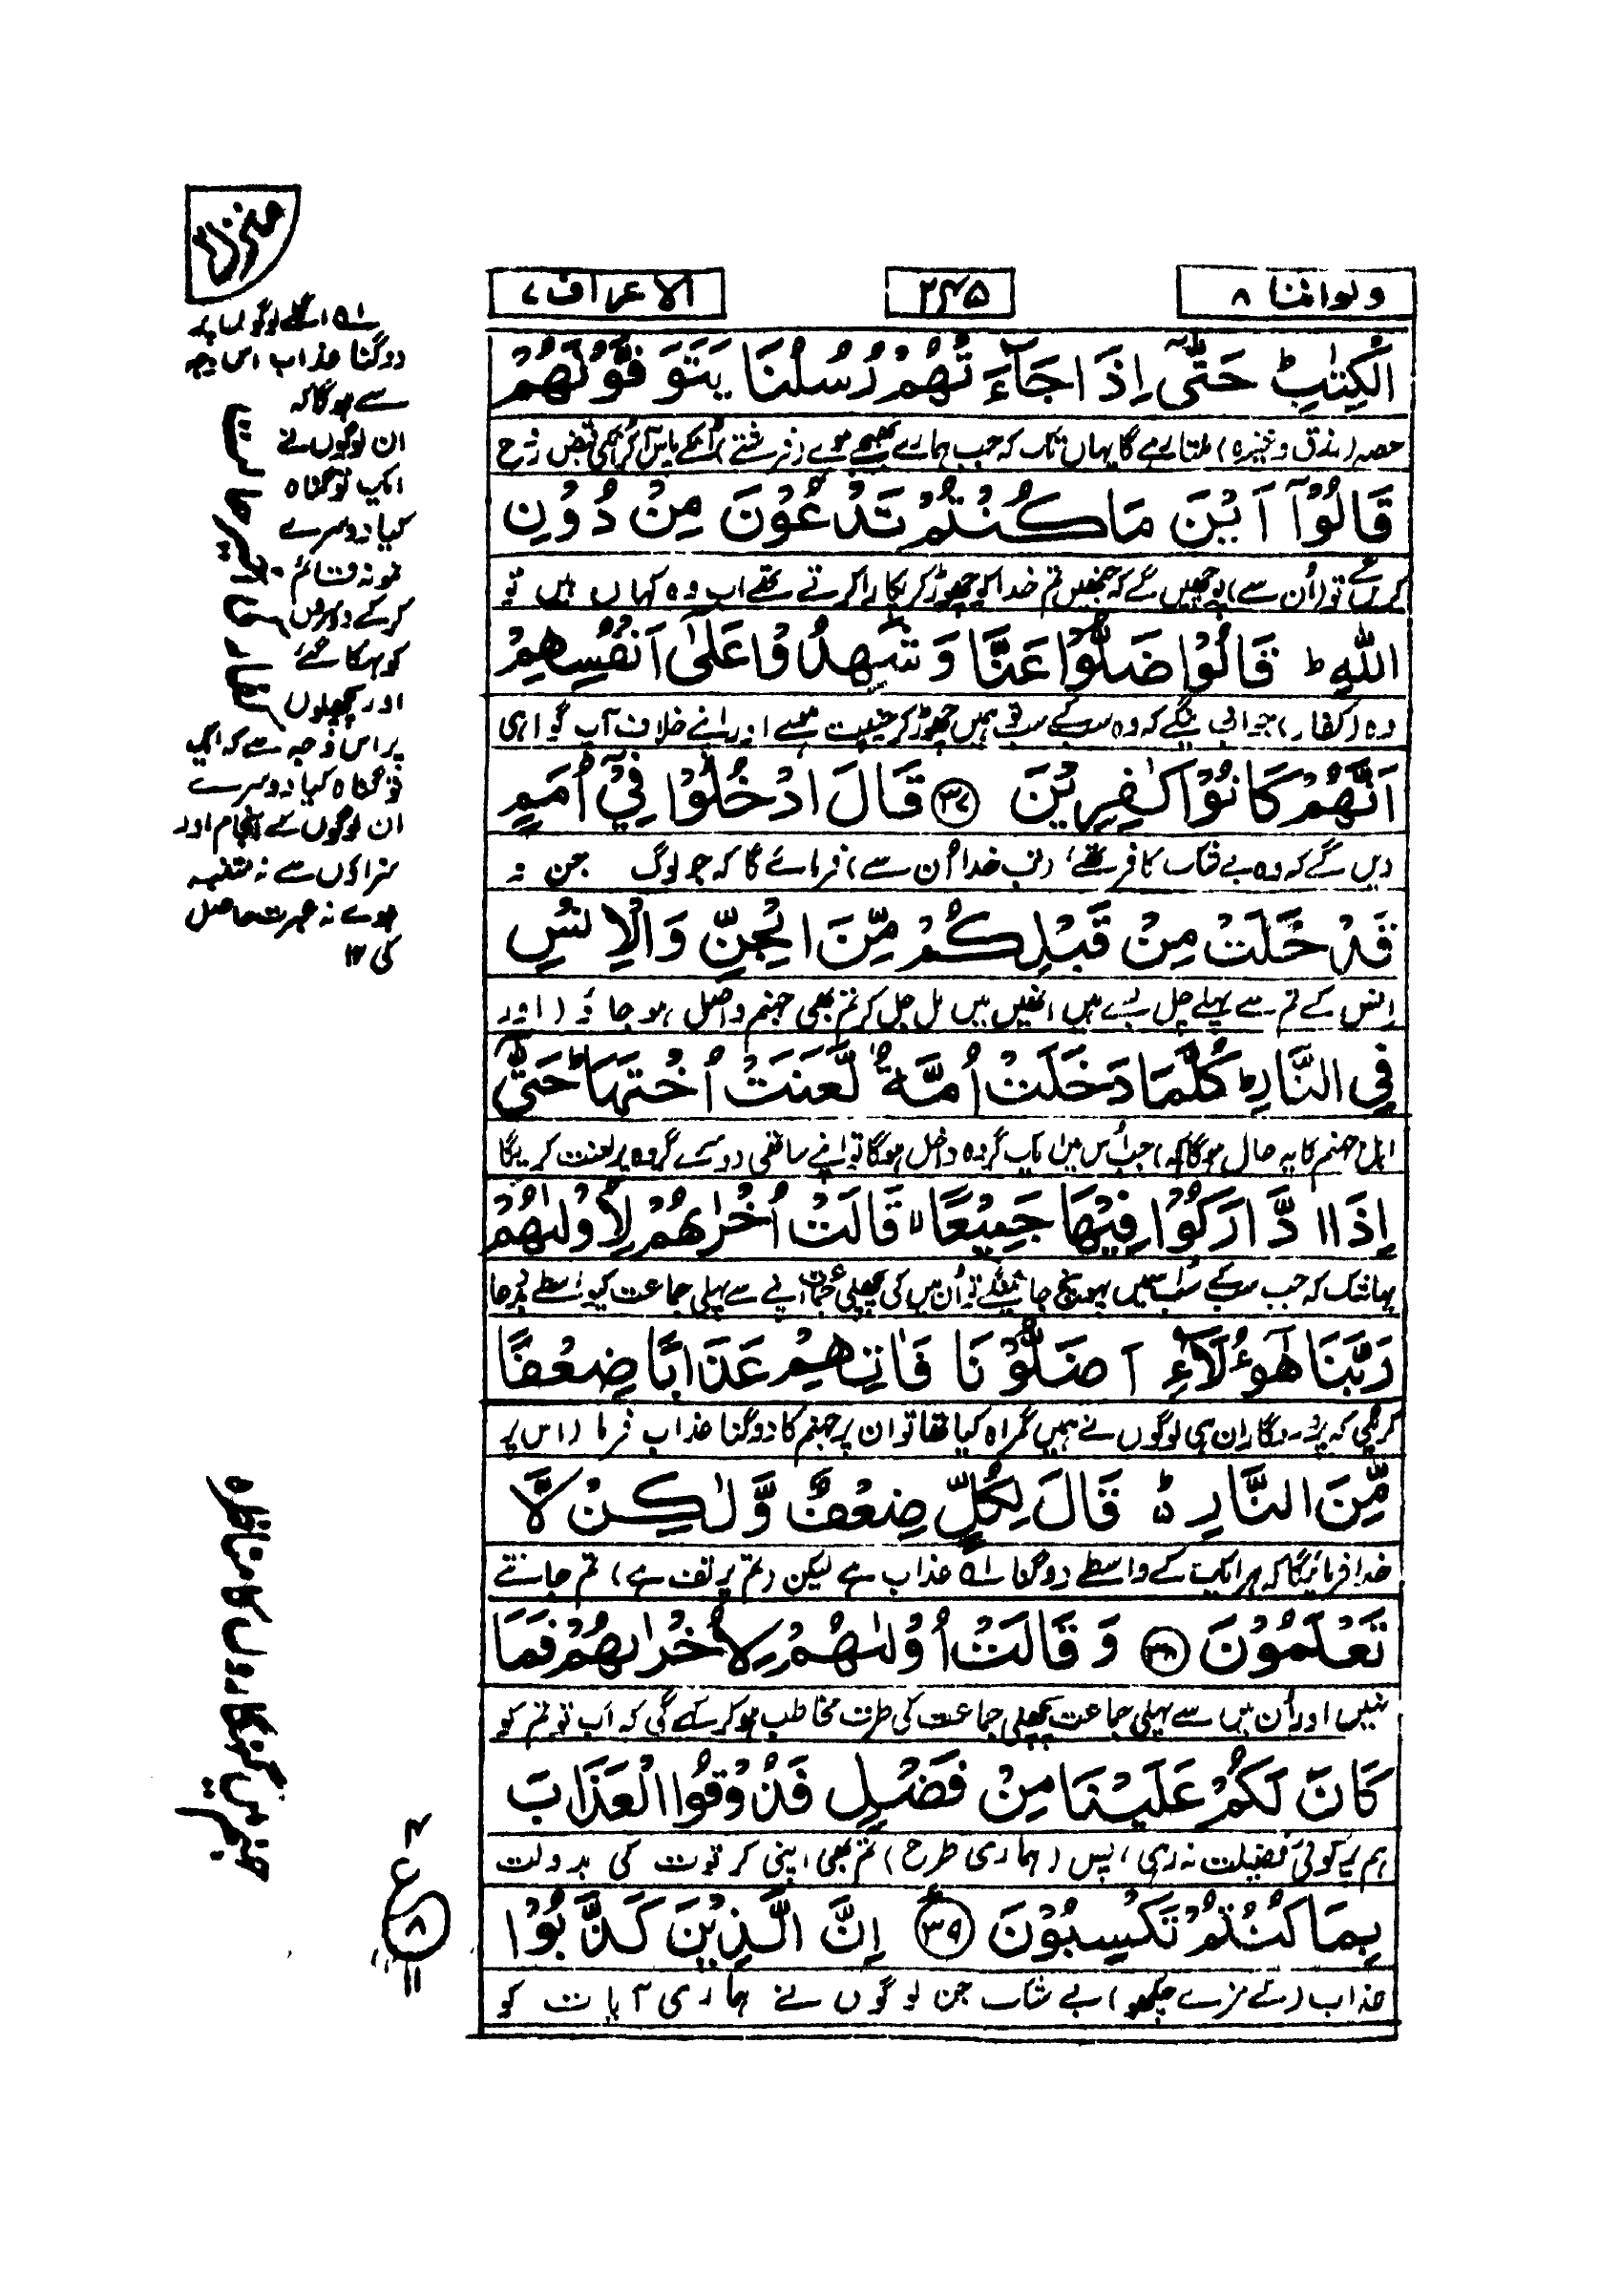 ولواننا ۸
۲۴۵
الاعراف ۷
الْكِتٰبِ ؕ حَتّٰۤى اِذَا جَآءَتْهُمْ رُسُلُنَا يَتَوَفَّوْنَهُمْ
حصہ (رزق وغیرہ) ملتا رہے گا یہاں تک کہ جب ہمارے بھیجے ہوے (فرشتے) اُنکے پاس آکر اُنکی قبض روح
قَالُوْۤا اَيْنَ مَا كُنْتُمْ تَدْعُوْنَ مِنْ دُوْنِ
کرینگے تو (اُن سے) پوچھیں گے کہ جنھیں تم خدا کو چھوڑ کر پکارا کرتے تھے اب وہ کہاں ہیں تو
اللّٰهِ ؕ قَالُوْا ضَلُّوْا عَنَّا وَ شَهِدُوْا عَلٰۤى اَنْفُسِهِمْ
وہ (کفار) جواب دینگے کہ وہ سب کے سب تو ہمیں چھوڑ کر چنپت ہوے اور اپنے خلاف آپ گواہی
اَنَّهُمْ كَانُوْا كٰفِرِيْنَ ۳۷ قَالَ ادْخُلُوْا فِيْۤ اُمَمٍ
دیں گے کہ وہ بے شک کافر تھے (تب خدا اُن سے) فرمائے گا کہ جو لوگ جن و
قَدْ خَلَتْ مِنْ قَبْلِكُمْ مِّنَ الْجِنِّ وَالْاِنْسِ
انس کے تم سے پہلے چل بسے ہیں انھیں میں مل جل کر تم بھی جہنم واصل ہو جاؤ (اور
فِي النَّارِ ؕ كُلَّمَا دَخَلَتْ اُمَّةٌ لَّعَنَتْ اُخْتَهَا ؕ حَتّٰۤى
اہل جہنم کا یہ حال ہوگا کہ) جب اُس میں ایک گروہ داخل ہوگا تو اپنے ساتھی دوسرے گروہ پر لعنت کریگا
اِذَا ادَّارَكُوْا فِيْهَا جَمِيْعًا ۙ قَالَتْ اُخْرٰىهُمْ لِاُوْلٰىهُمْ
یہانتک کہ جب سب کے سب اُس میں پہونچ جائینگے تو اُن میں کی پچھلی جماعت اپنے سے پہلی جماعت کیواسطے بددعا
رَبَّنَا هٰۤؤُلَآءِ اَضَلُّوْنَا فَاٰتِهِمْ عَذَابًا ضِعْفًا
کریگی کہ پروردگار ان ہی لوگوں نے ہمیں گمراہ کیا تھا تو ان پر جہنم کا دوگنا عذاب فرما (اس پر
مِّنَ النَّارِ ؕ قَالَ لِكُلٍّ ضِعْفٌ وَّلٰكِنْ لَّا
خدا فرمائیگا کہ ہر ایک کے واسطے دوگنا لہ عذاب ہے لیکن (تم پر تف ہے) تم جانتے
تَعْلَمُوْنَ ۳۸ وَ قَالَتْ اُوْلٰىهُمْ لِاُخْرٰىهُمْ فَمَا
نہیں اور اُن میں سے پہلی جماعت پچھلی جماعت کی طرف مخاطب ہوکر کہے گی کہ اب تو تم کو
كَانَ لَكُمْ عَلَيْنَا مِنْ فَضْلٍ فَذُوْقُوا الْعَذَابَ
ہم پر کوئی فضیلت نہ رہی، پس (ہماری طرح) تم بھی اپنی کرتوت کی بدولت
بِمَا كُنْتُمْ تَكْسِبُوْنَ ۳۹ اِنَّ الَّذِيْنَ كَذَّبُوْا
عذاب (کے مزے چکھو) بے شک جن لوگوں نے ہماری آیات کو
منزل ۲
لہ اگلے لوگوں پر
دوگنا عذاب اس وجہ
سے ہوگا کہ
ان لوگوں نے
ایک تو گناہ
کیا دوسرے
نمونہ قائم
کرکے دوسروں
کو بہکا گئے
اور پچھلوں
پر اس وجہ سے کہ ایک
تو گناہ کیا دوسرے
ان لوگوں کے انجام اور
سزاؤں سے نہ متنبہ
ہوے نہ عبرت حاصل
کی ۱۲
جہنم میں گنہگاروں کا مناظرہ
ع
۸
۱۱